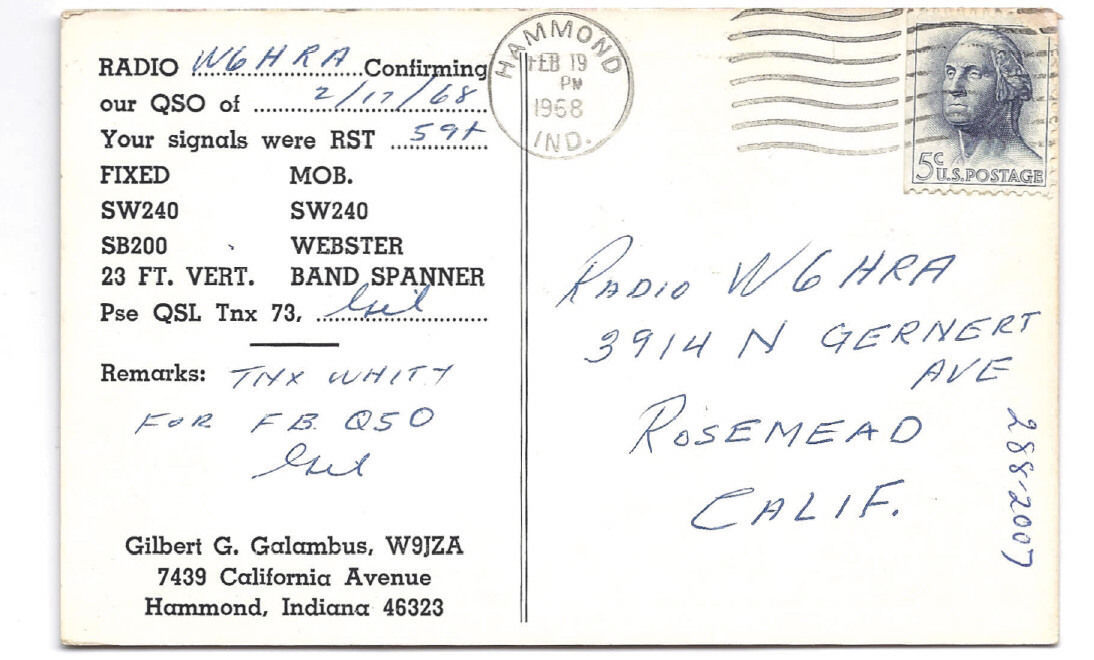 RADIO W6HRA Confirming
our QSO of 2/17/68
Your signals were RST 59+
FIXED MOB.
SW240 SW240
SB200 WEBSTER
23 FT. VERT. BAND SPANNER
Pse QSL Tnx 73, Gil
Remarks: TNX WHITY
FOR FB QSO
Gil
Gilbert G. Galambus, W9JZA
7439 California Avenue
Hammond, Indiana 46323
HAMMOND
FEB 19
PM
1968
IND.
5c U.S. POSTAGE
RADIO W6HRA
3914 N GERNERT
AVE
ROSEMEAD
CALIF.
288-2007